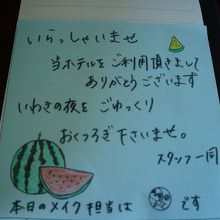 いらっしゃいませ
当ホテルをご利用頂きまして
ありがとうございます
いわきの夜をごゆっくり
おくつろぎ下さいませ。
スタッフ一同
本日のメイク担当は です